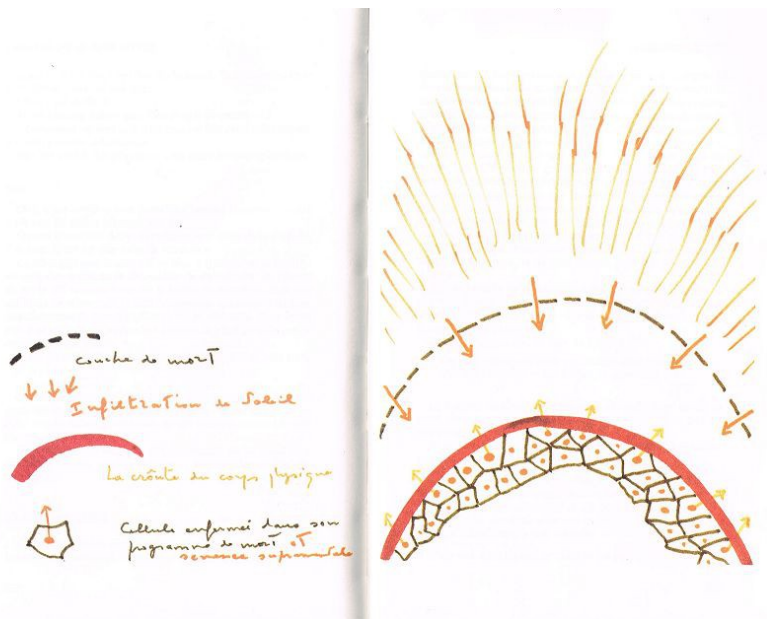 couche de mort
Infiltration de Soleil
La croûte du corps physique
Cellule enfermée dans son
programme de mort et
semence supramentale